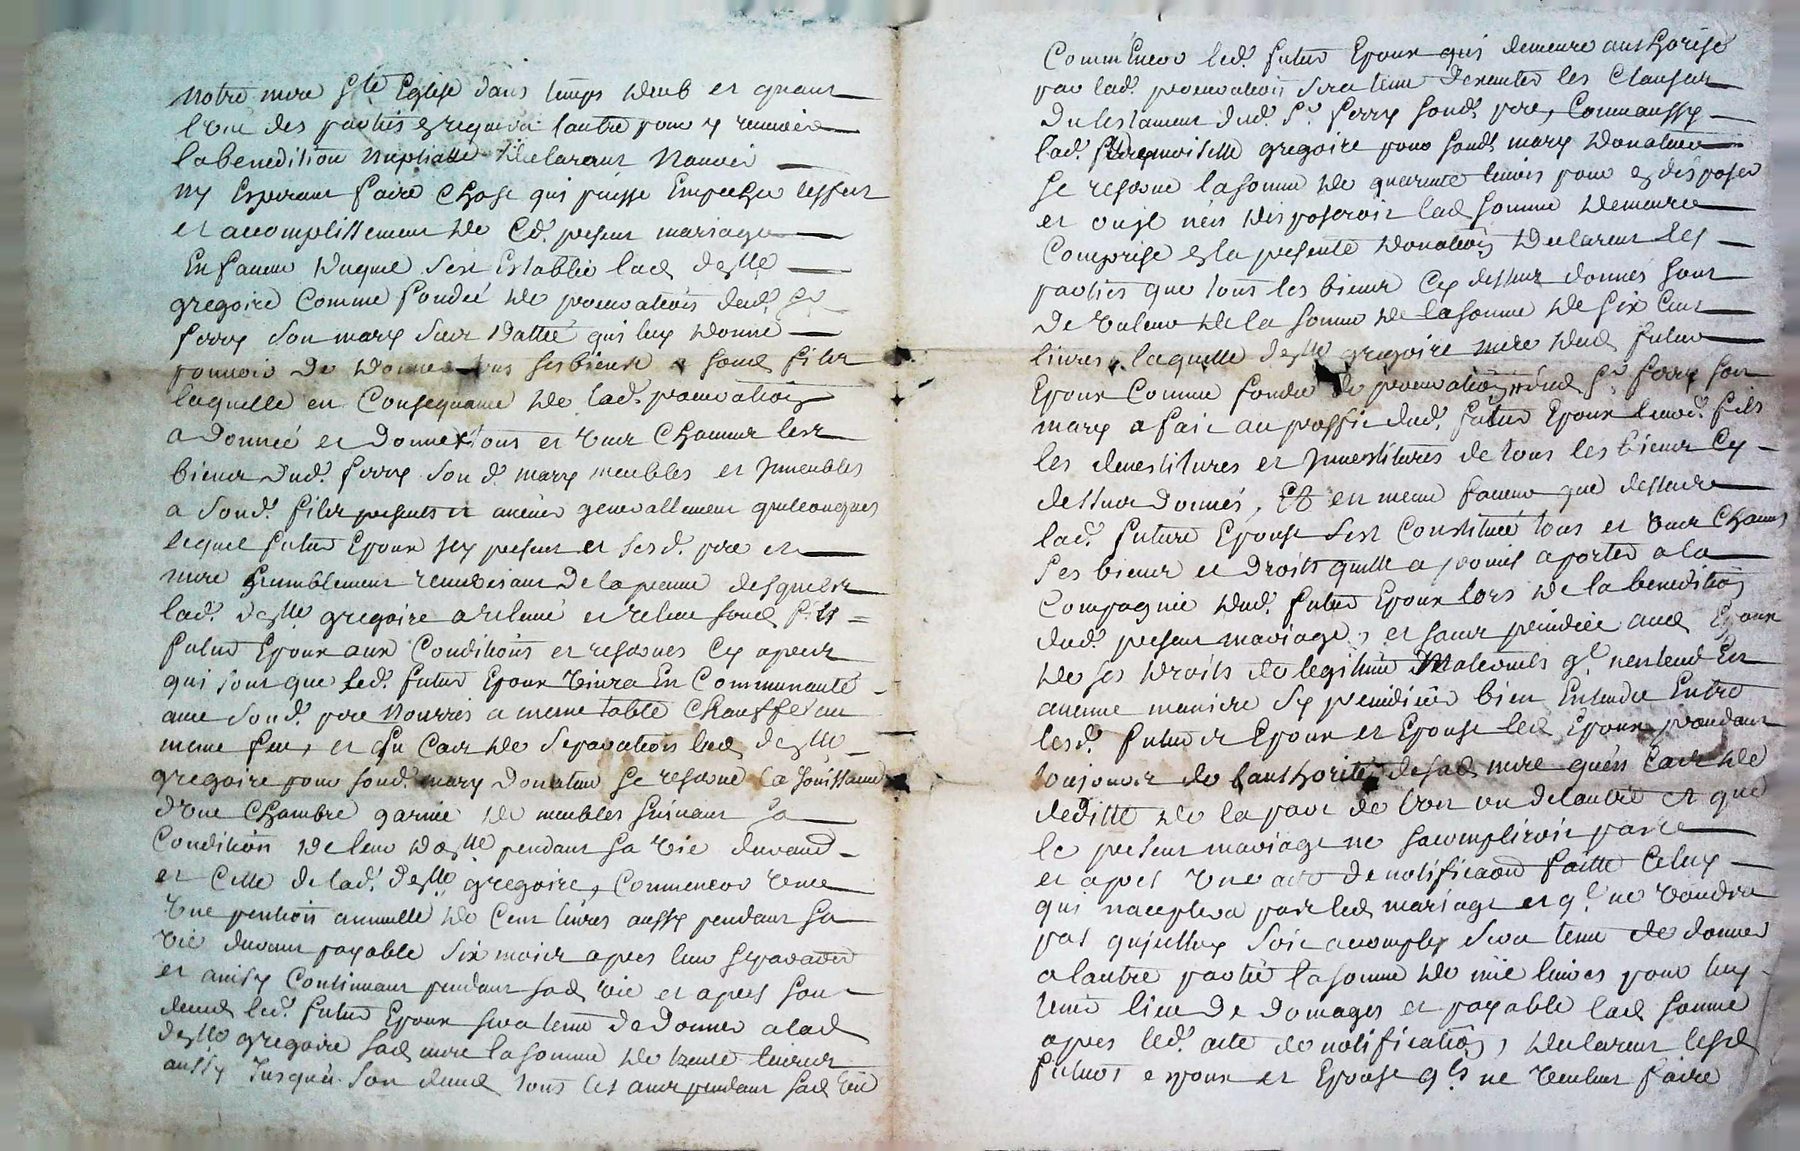 notre mere Ste Eglise dans temps deub et quant
l'une des parties en requerra l'autre pour y recevoir
la benediction nuptialle declarant n'avoir
ny Esperant faire chose qui puisse Empecher l'effect
et accomplissement de Cd. present mariage
En faveur duquel s'est Establie lad. deslle
gregoire Comme fondée de procuration dud. Sr
ferry son mary sur dattée qui luy donne
pouvoir de donner tous ses biens a sond. filz
laquelle en Consequance de lad. procuration
a donnée et donne tous et uns Chacuns les
biens dud. ferry son d. mary meubles et jmeubles
a sond. filz presents et avenir generallement quelconques
lequel futur Epoux icy present et sesd. pere et
mere humblement remercisant de la peine desquels
lad. deslle gregoire a relevé et releve sond. fils
futur Epoux aux Conditions et reserves Cy apres
qui sont que led. futur Epoux vivra En Communauté
avec sond. pere nourris a meme table chauffé au
meme feu, et En Cas de separation lad. deslle
gregoire pour sond. mary donateur se reserve la jouissance
d'une Chambre garnie de meubles suivant sa
Condition de leur pendant sa vie durand
et Celle de lad. deslle gregoire, Comme
une pention annuelle de Cent livres aussy pendant sa
vie durant payable six mois apres leur separation
et ainsy Continuant pendant sad. vie et apres son
deced led. futur Epoux sera tenu de donner a lad.
deslle gregoire sad. mere la somme de trente livres
aussy Jusqu'a son deced tous les ans pendant sad. vie
led. futur Epoux qui demeure authorisé
par lad. procuration sera tenu d'executer les Clauses
du testament dud. Sr ferry sond. pere, Comme aussy
lad. demoiselle gregoire pour sond. mary donateur
se reserve la somme de quarente livres pour en disposer
et ou jl n'en disposeroit lad. somme demeurera
Comprise en la presente donation declarent les
parties que tous les biens Cy dessus donnés sont
de valeur de la somme de la somme de six Cent
livres, laquelle deslle gregoire mere dud. futur
Epoux Comme fondée de procuration dud. Sr ferry son
mary a fait au proffit dud. futur Epoux leurd. fils
les devestitures et jnvestitures de tous les biens Cy
dessus donnés, Et en meme faveur que dessus
lad. future Epouse s'est Constituée tous et uns Chacuns
ses biens et droits qu'elle a promis aporter a la
Compagnie dud. futur Epoux lors de la benediction
dud. present mariage, et sans prejudice aud. Epoux
de ses droits de legitime Maternels ql n'entend En
aucune maniere Sy prejudicier bien Entendu Entre
lesd. futurs Epoux et Epouse led. Epoux prandant
toujours de l'authorité de sad. mere qu'en Cas de
deditte de la part de l'un ou de l'autre et que
le present mariage ne s'acompliroit pas
et apres une acte de notification faitte Celuy
qui n'acceptera pas led. mariage et ql ne voudra
pas qu'jcelluy soit accomply sera tenu de donner
a l'autre partie la somme de mil livres pour luy
tenir lieu de domages et payable lad. somme
apres led. acte de notification, declarent lesd.
futurs epoux et Epouse qls ne veulent faire